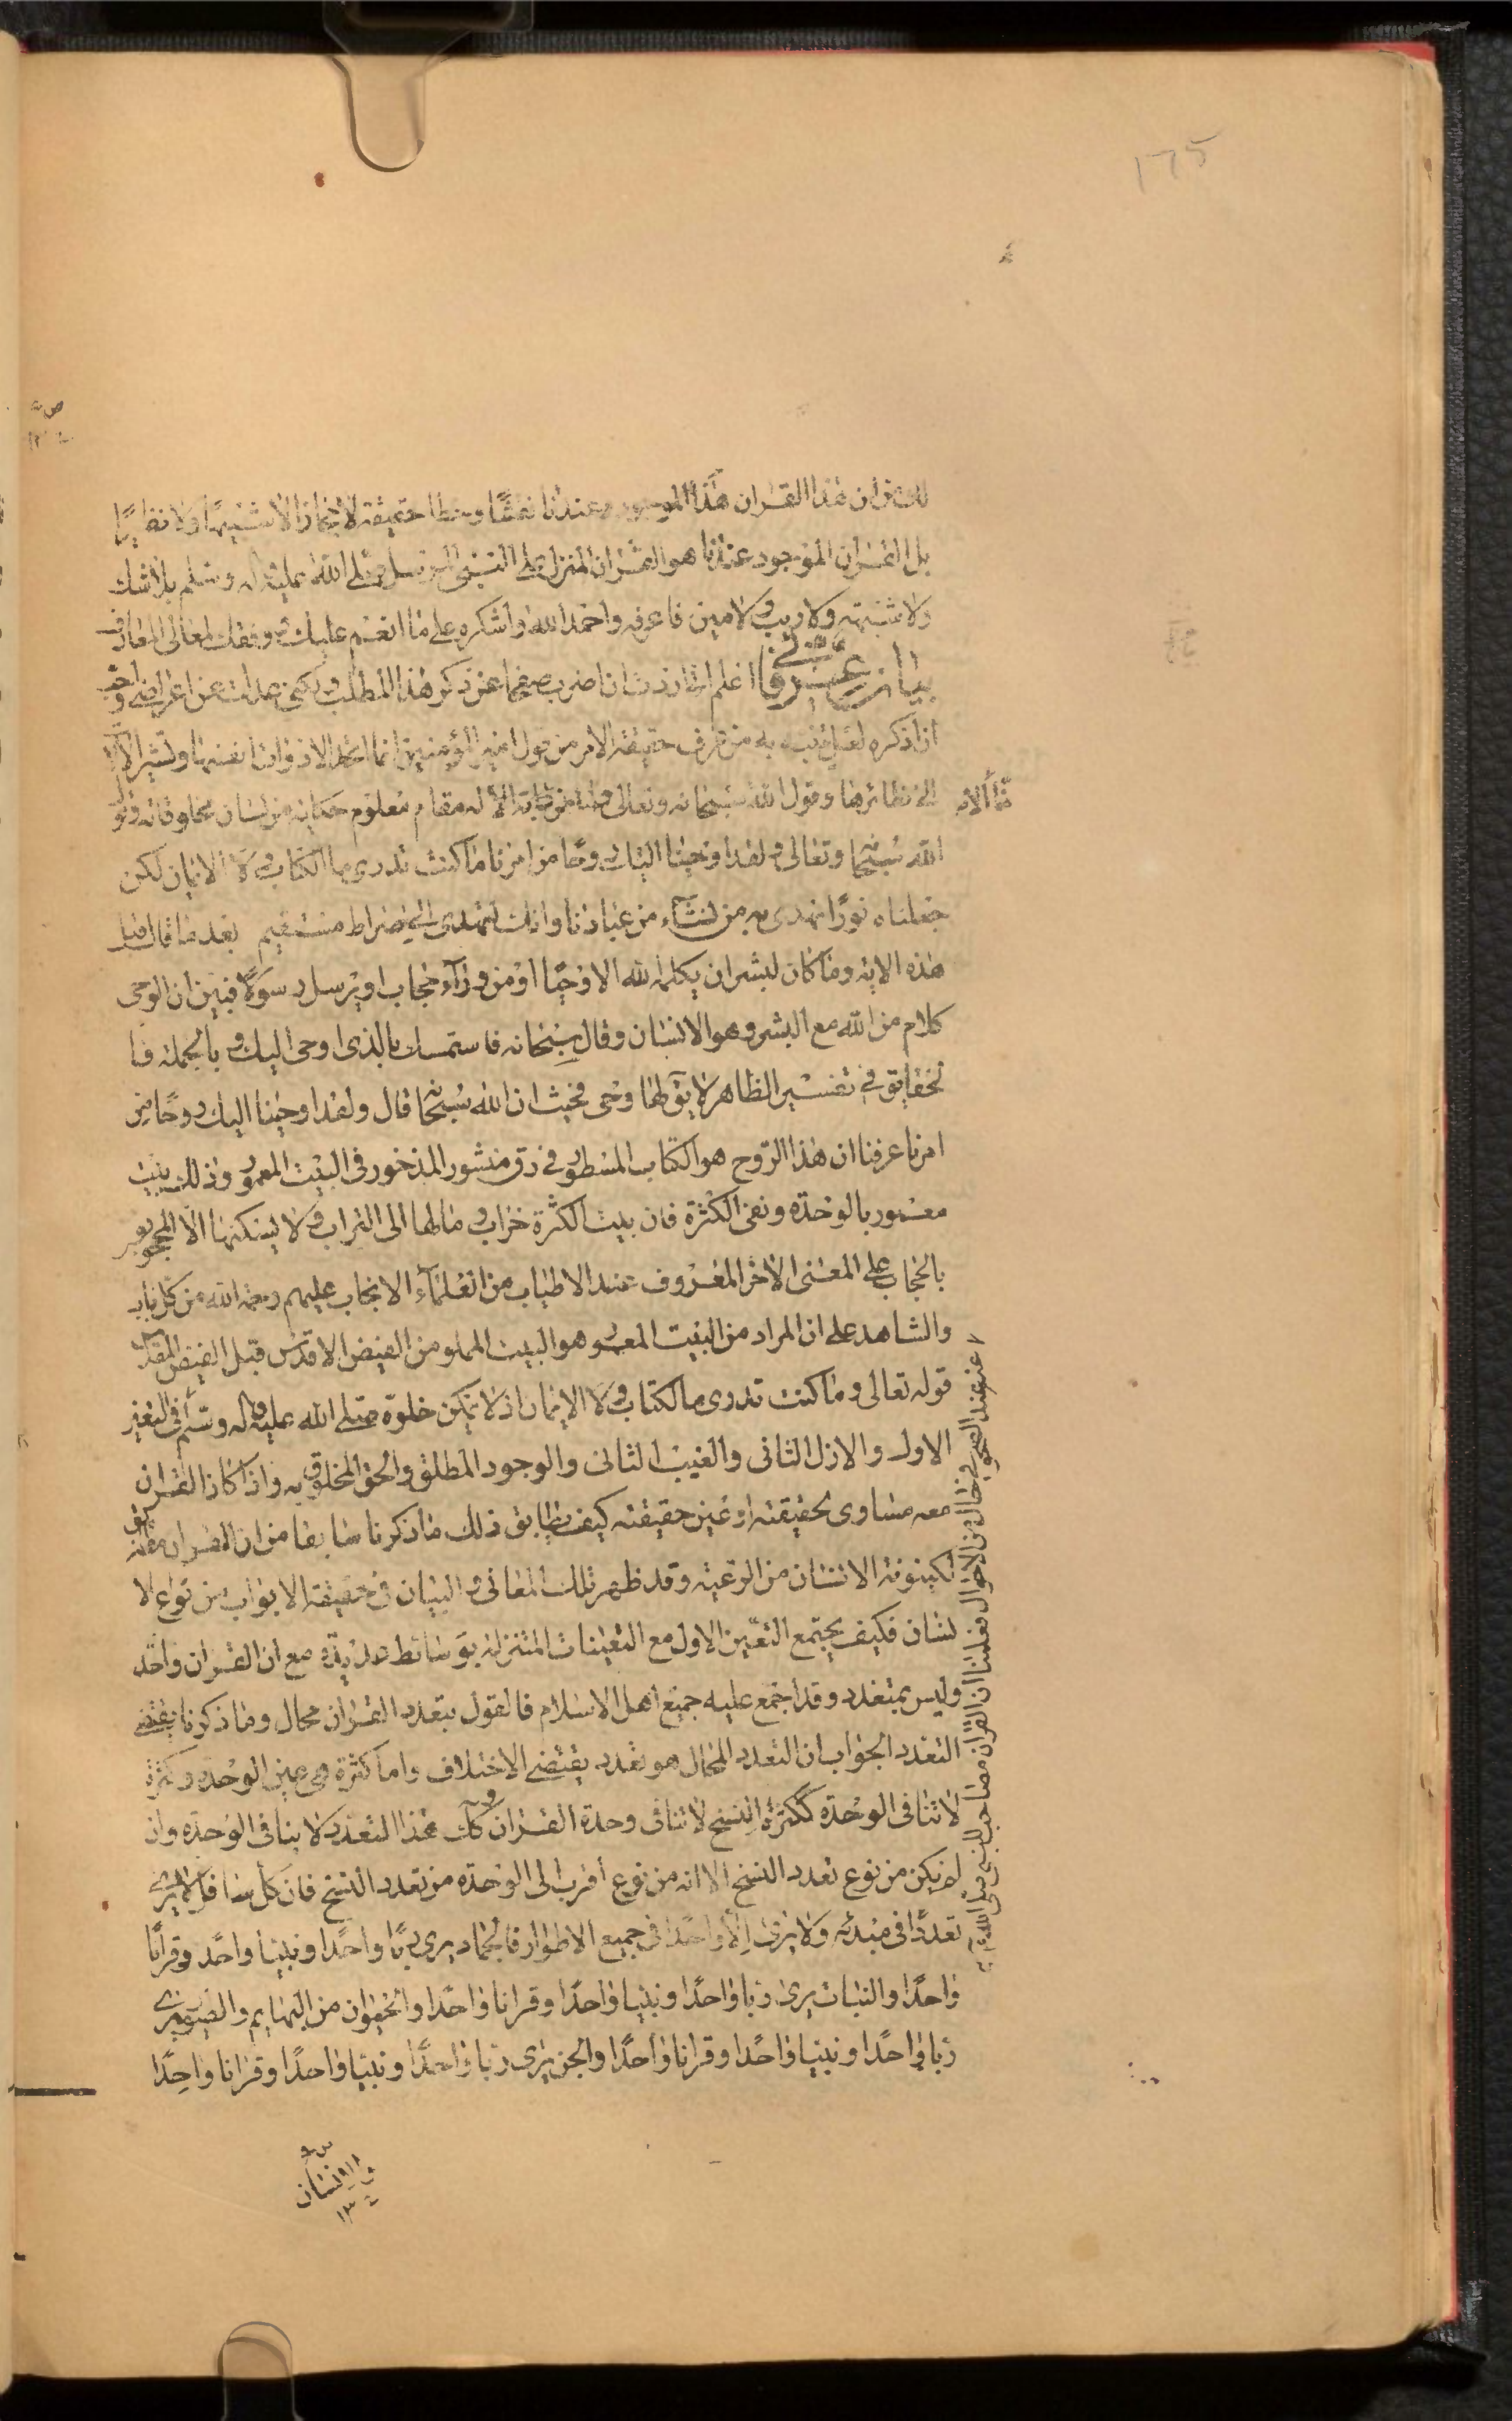 175
ان هذا القران هذا الموجود عندنا نقشا وخطا حقيقة لا مجازا لا شبيها ولا نظيرا
بل القران الموجود عندنا هو القران المنزل على النبي المرسل صلى الله عليه واله وسلم بلا شك
ولا شبهة ولا ريب ولا مين فاعرفه واحمد الله واشكره على ما انعم عليك ووفقك لمعالى المعارف
بيان عرشى اعلم انى اردت ان اضرب صفحا عن ذكر هذا المطلب ولكنى عدلت عن اعراضى و
ان اذكره لعلى انبه به من عرف حقيقة الامر من قول امير المؤمنين انما تحد الادوات انفسها وتشير الآلات
الى نظائرها وقول الله سبحانه وتعالى وما منا الا له مقام معلوم حكاية من لسان مخلوقاته وقول
الله سبحانه وتعالى ولقد اوحينا اليك روحا من امرنا ما كنت تدرى ما الكتاب ولا الايمان لكن
جعلناه نورا نهدى به من نشاء من عبادنا وانك لتهدى الى صراط مستقيم بعد ما قال قبل
هذه الاية وما كان لبشر ان يكلمه الله الا وحيا او من وراء حجاب او يرسل رسولا فبين ان الوحى
كلام من الله مع البشر وهو الانسان وقال سبحانه فاستمسك بالذى اوحى اليك وبالجملة فا
لحقايق فى تفسير الظاهر لا يق لها وحى فحيث ان الله سبحانه قال ولقد اوحينا اليك روحا من
امرنا عرفنا ان هذا الروح هو الكتاب المسطور فى رق منشور المذخور فى البيت المعمور وذلك بيت
معمور بالوحدة ونفى الكثرة فان بيت الكثرة خراب ومالها الى التراب ولا يسكنها الا المحجوبون
بالحجاب على المعنى الاخر المعروف عند الاطياب من العلماء الانجاب عليهم رحمة الله من كل باب
والشاهد على ان المراد من البيت المعمور هو البيت المملو من الفيض الاقدس قبل الفيض المقدس
قوله تعالى وما كنت تدرى ما لكتاب ولا الايمان اذ لا يمكن خلوه صلى الله عليه واله وسلم فى التعين
الاول والازل الثانى والغيب الثانى والوجود المطلق والحق المخلوق به واذا كان القران
معه مساوى لحقيقته او عين حقيقته كيف يطابق ذلك ما ذكرنا سابقا من ان القران
لكينونة الانسان من الرعية وقد ظهر تلك المعانى والبيان فى حقيقة الابواب من نوع الا
نسان فكيف يجتمع التعين الاول مع التعينات المتنزلة بوسائط عديدة مع ان القران واحد
وليس بمتعدد وقد اجمع عليه جميع اهل الاسلام فالقول بتعدد القران محال وما ذكرنا يقتضى
التعدد الجواب ان التعدد المحال هو تعدد يقتضى الاختلاف واما كثرة هى عين الوحدة وكثرة
لا تنافى الوحدة ككثرة النسخ لا تنافى وحدة القران وكك هذا التعدد لا ينافى الوحدة وان
لم يكن من نوع تعدد النسخ الا انه من نوع اقرب الى الوحدة من تعدد النسخ فان كل سافل لا يرى
تعددا فى مبدئه ولا يرى الا واحدا فى جميع الاطوار فالجماد يرى ربا واحدا ونبيا واحدا وقرانا
واحدا والنبات يرى ربا واحدا ونبيا واحدا وقرانا واحدا والحيوان من البهايم والطيور يرى
ربا واحدا ونبيا واحدا وقرانا واحدا والجن يرى ربا واحدا ونبيا واحدا وقرانا واحدا
والانسان